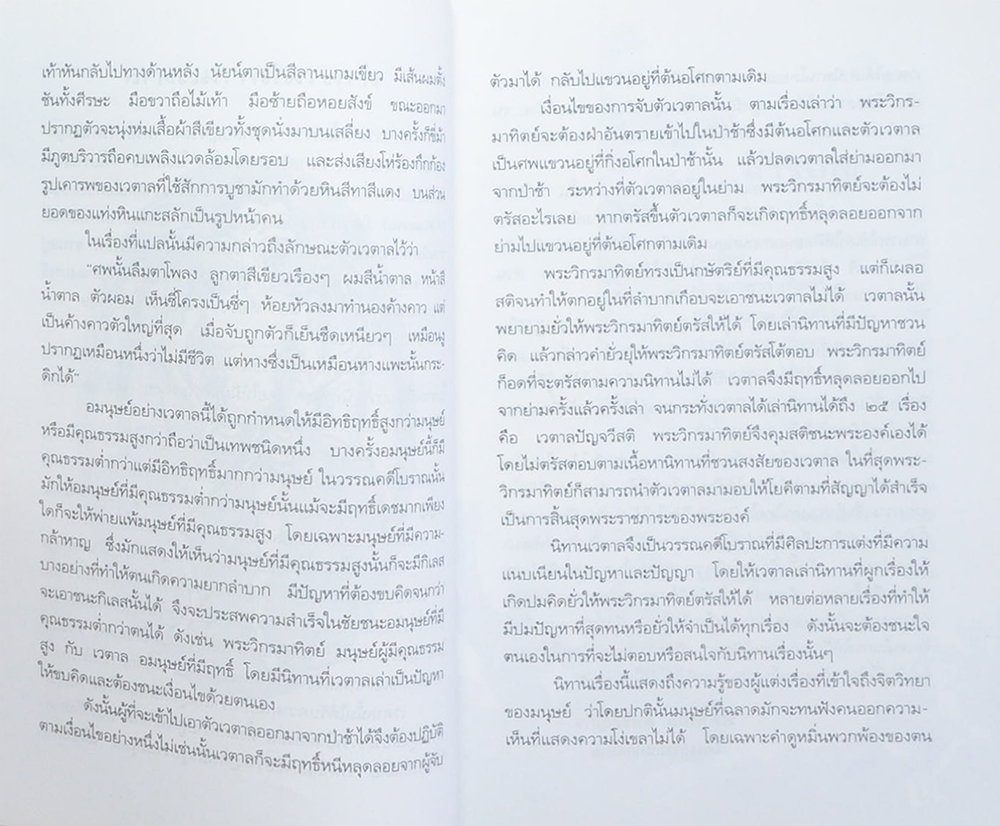 เท้าหันกลับไปทางด้านหลัง นัยน์ตาเป็นสีลานแกมเขียว มีเส้นผมตั้ง
ชันทั้งศีรษะ มือขวาถือไม้เท้า มือซ้ายถือหอยสังข์ ขณะออกมา
ปรากฏตัวจะนุ่งห่มเสื้อผ้าสีเขียวทั้งชุดนั่งมาบนเสลี่ยง บางครั้งก็ขี่ม้า
มีภูตบริวารถือคบเพลิงแวดล้อมโดยรอบ และส่งเสียงโห่ร้องกึกก้อง
รูปเคารพของเวตาลที่ใช้สักการบูชามักทำด้วยหินสีทาสีแดง บนส่วน
ยอดของแท่งหินแกะสลักเป็นรูปหน้าคน
ในเรื่องที่แปลนั้นมีความกล่าวถึงลักษณะตัวเวตาลไว้ว่า
"ศพนั้นลืมตาโพลง ลูกตาสีเขียวเรืองๆ ผมสีน้ำตาล หน้าสี
น้ำตาล ตัวผอม เห็นซี่โครงเป็นซี่ๆ ห้อยหัวลงมาทำนองค้างคาว แต่
เป็นค้างคาวตัวใหญ่ที่สุด เมื่อจับถูกตัวก็เย็นชืดเหนียวๆ เหมือนงู
ปรากฏเหมือนหนึ่งว่าไม่มีชีวิต แต่หางซึ่งเป็นเหมือนหางแพะนั้นกระ-
ดิกได้"
อมนุษย์อย่างเวตาลนี้ได้ถูกกำหนดให้มีอิทธิฤทธิ์สูงกว่ามนุษย์
หรือมีคุณธรรมสูงกว่าถือว่าเป็นเทพชนิดหนึ่ง บางครั้งอมนุษย์นี้ก็มี
คุณธรรมต่ำกว่าแต่มีอิทธิฤทธิ์มากกว่ามนุษย์ ในวรรณคดีโบราณนั้น
มักให้อมนุษย์ที่มีคุณธรรมต่ำกว่ามนุษย์นั้นแม้จะมีฤทธิ์เดชมากเพียง
ใดก็จะให้พ่ายแพ้มนุษย์ที่มีคุณธรรมสูง โดยเฉพาะมนุษย์ที่มีความ-
กล้าหาญ ซึ่งมักแสดงให้เห็นว่ามนุษย์ที่มีคุณธรรมสูงนั้นก็จะมีกิเลส
บางอย่างที่ทำให้ตนเกิดความยากลำบาก มีปัญหาที่ต้องขบคิดจนกว่า
จะเอาชนะกิเลสนั้นได้ จึงจะประสพความสำเร็จในชัยชนะอมนุษย์ที่มี
คุณธรรมต่ำกว่าตนได้ ดังเช่น พระวิกรมาทิตย์ มนุษย์ผู้มีคุณธรรม
สูง กับ เวตาล อมนุษย์ที่มีฤทธิ์ โดยมีนิทานที่เวตาลเล่าเป็นปัญหา
ให้ขบคิดและต้องชนะเงื่อนไขด้วยตนเอง
ดังนั้นผู้ที่จะเข้าไปเอาตัวเวตาลออกมาจากป่าช้าได้จึงต้องปฏิบัติ
ตามเงื่อนไขอย่างหนึ่งไม่เช่นนั้นเวตาลก็จะมีฤทธิ์หนีหลุดลอยจากผู้จับ
ตัวมาได้ กลับไปแขวนอยู่ที่ต้นอโศกตามเดิม
เงื่อนไขของการจับตัวเวตาลนั้น ตามเรื่องเล่าว่า พระวิกร-
มาทิตย์จะต้องฝ่าอันตรายเข้าไปในป่าช้าซึ่งมีต้นอโศกและตัวเวตาล
เป็นศพแขวนอยู่ที่กิ่งอโศกในป่าช้านั้น แล้วปลดเวตาลใส่ย่ามออกมา
จากป่าช้า ระหว่างที่ตัวเวตาลอยู่ในย่าม พระวิกรมาทิตย์จะต้องไม่
ตรัสอะไรเลย หากตรัสขึ้นตัวเวตาลก็จะเกิดฤทธิ์หลุดลอยออกจาก
ย่ามไปแขวนอยู่ที่ต้นอโศกตามเดิม
พระวิกรมาทิตย์ทรงเป็นกษัตริย์ที่มีคุณธรรมสูง แต่ก็เผลอ
สติจนทำให้ตกอยู่ในที่ลำบากเกือบจะเอาชนะเวตาลไม่ได้ เวตาลนั้น
พยายามยั่วให้พระวิกรมาทิตย์ตรัสให้ได้ โดยเล่านิทานที่มีปัญหาชวน
คิด แล้วกล่าวคำยั่วยุให้พระวิกรมาทิตย์ตรัสโต้ตอบ พระวิกรมาทิตย์
ก็อดที่จะตรัสตามความนิทานไม่ได้ เวตาลจึงมีฤทธิ์หลุดลอยออกไป
จากย่ามครั้งแล้วครั้งเล่า จนกระทั่งเวตาลได้เล่านิทานได้ถึง ๒๕ เรื่อง
คือ เวตาลปัญจวีสติ พระวิกรมาทิตย์จึงคุมสติชนะพระองค์เองได้
โดยไม่ตรัสตอบตามเนื้อหานิทานที่ชวนสงสัยของเวตาล ในที่สุดพระ-
วิกรมาทิตย์ก็สามารถนำตัวเวตาลมามอบให้โยคีตามที่สัญญาได้สำเร็จ
เป็นการสิ้นสุดพระราชภาระของพระองค์
นิทานเวตาลจึงเป็นวรรณคดีโบราณที่มีศิลปะการแต่งที่มีความ
แนบเนียนในปัญหาและปัญญา โดยให้เวตาลเล่านิทานที่ผูกเรื่องให้
เกิดปมคิดยั่วให้พระวิกรมาทิตย์ตรัสให้ได้ หลายต่อหลายเรื่องที่ทำให้
มีปมปัญหาที่สุดทนหรือยั่วให้จำเป็นได้ทุกเรื่อง ดังนั้นจะต้องชนะใจ
ตนเองในการที่จะไม่ตอบหรือสนใจกับนิทานเรื่องนั้นๆ
นิทานเรื่องนี้แสดงถึงความรู้ของผู้แต่งเรื่องที่เข้าใจถึงจิตวิทยา
ของมนุษย์ ว่าโดยปกตินั้นมนุษย์ที่ฉลาดมักจะทนฟังคนออกความ-
เห็นที่แสดงความโง่เขลาไม่ได้ โดยเฉพาะคำดูหมิ่นพวกพ้องของตน